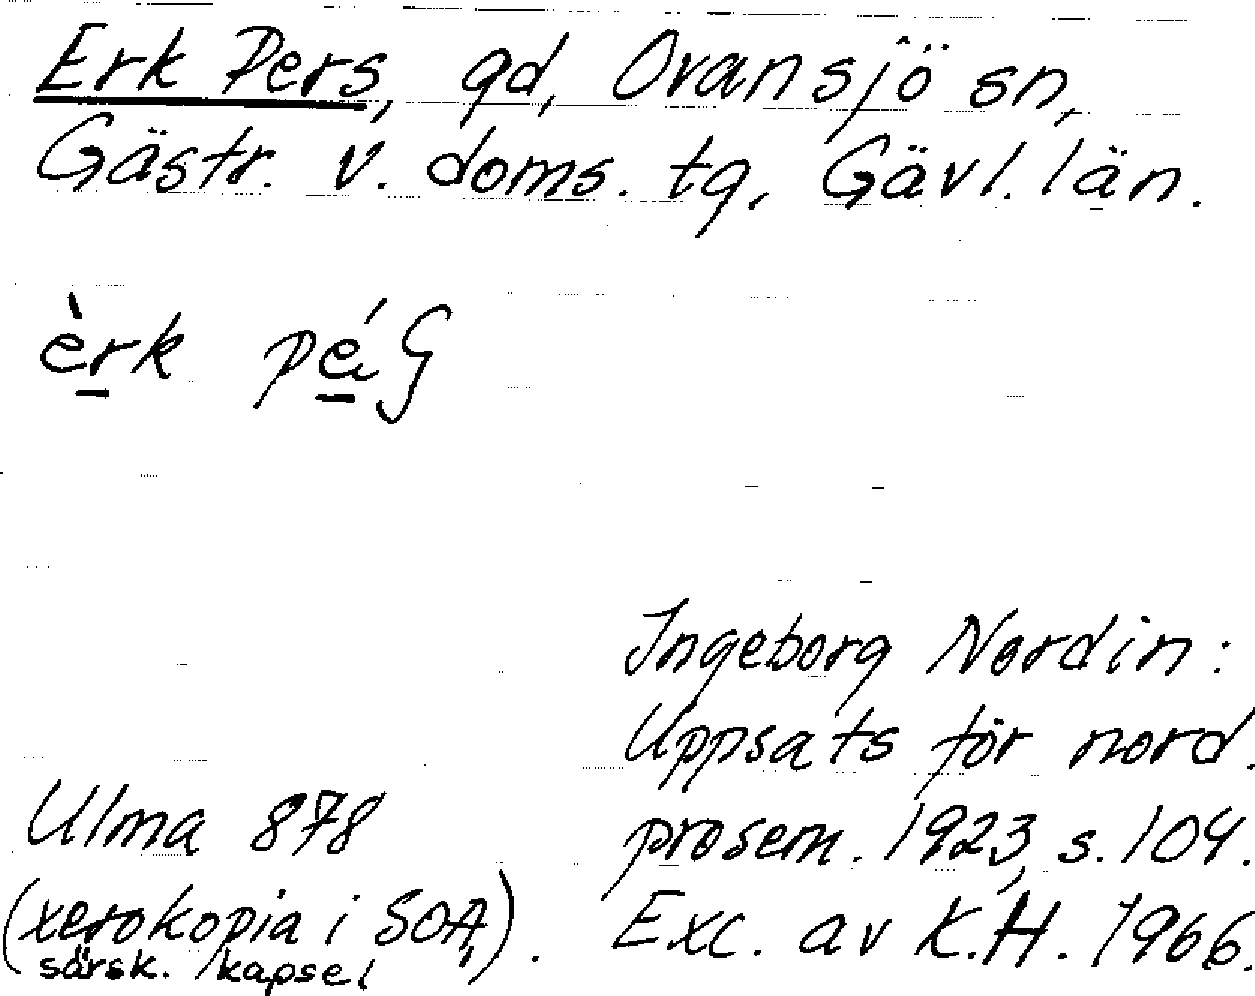 Erk Pers, gd, Ovansjö sn,
Gästr. v. doms. tg, Gävl. län.
èrk
Ingeborg Nordin:
Uppsats för nord.
Ulma 878
prosem. 1923, s. 104.
(xerokopia i SOA,
särsk. kapsel).
Exc. av K.H. 1966.